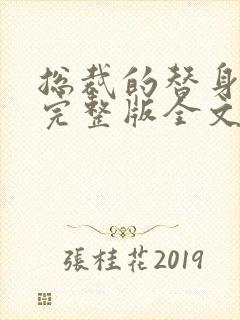 总裁的替身
完整版全文
張桂花2019